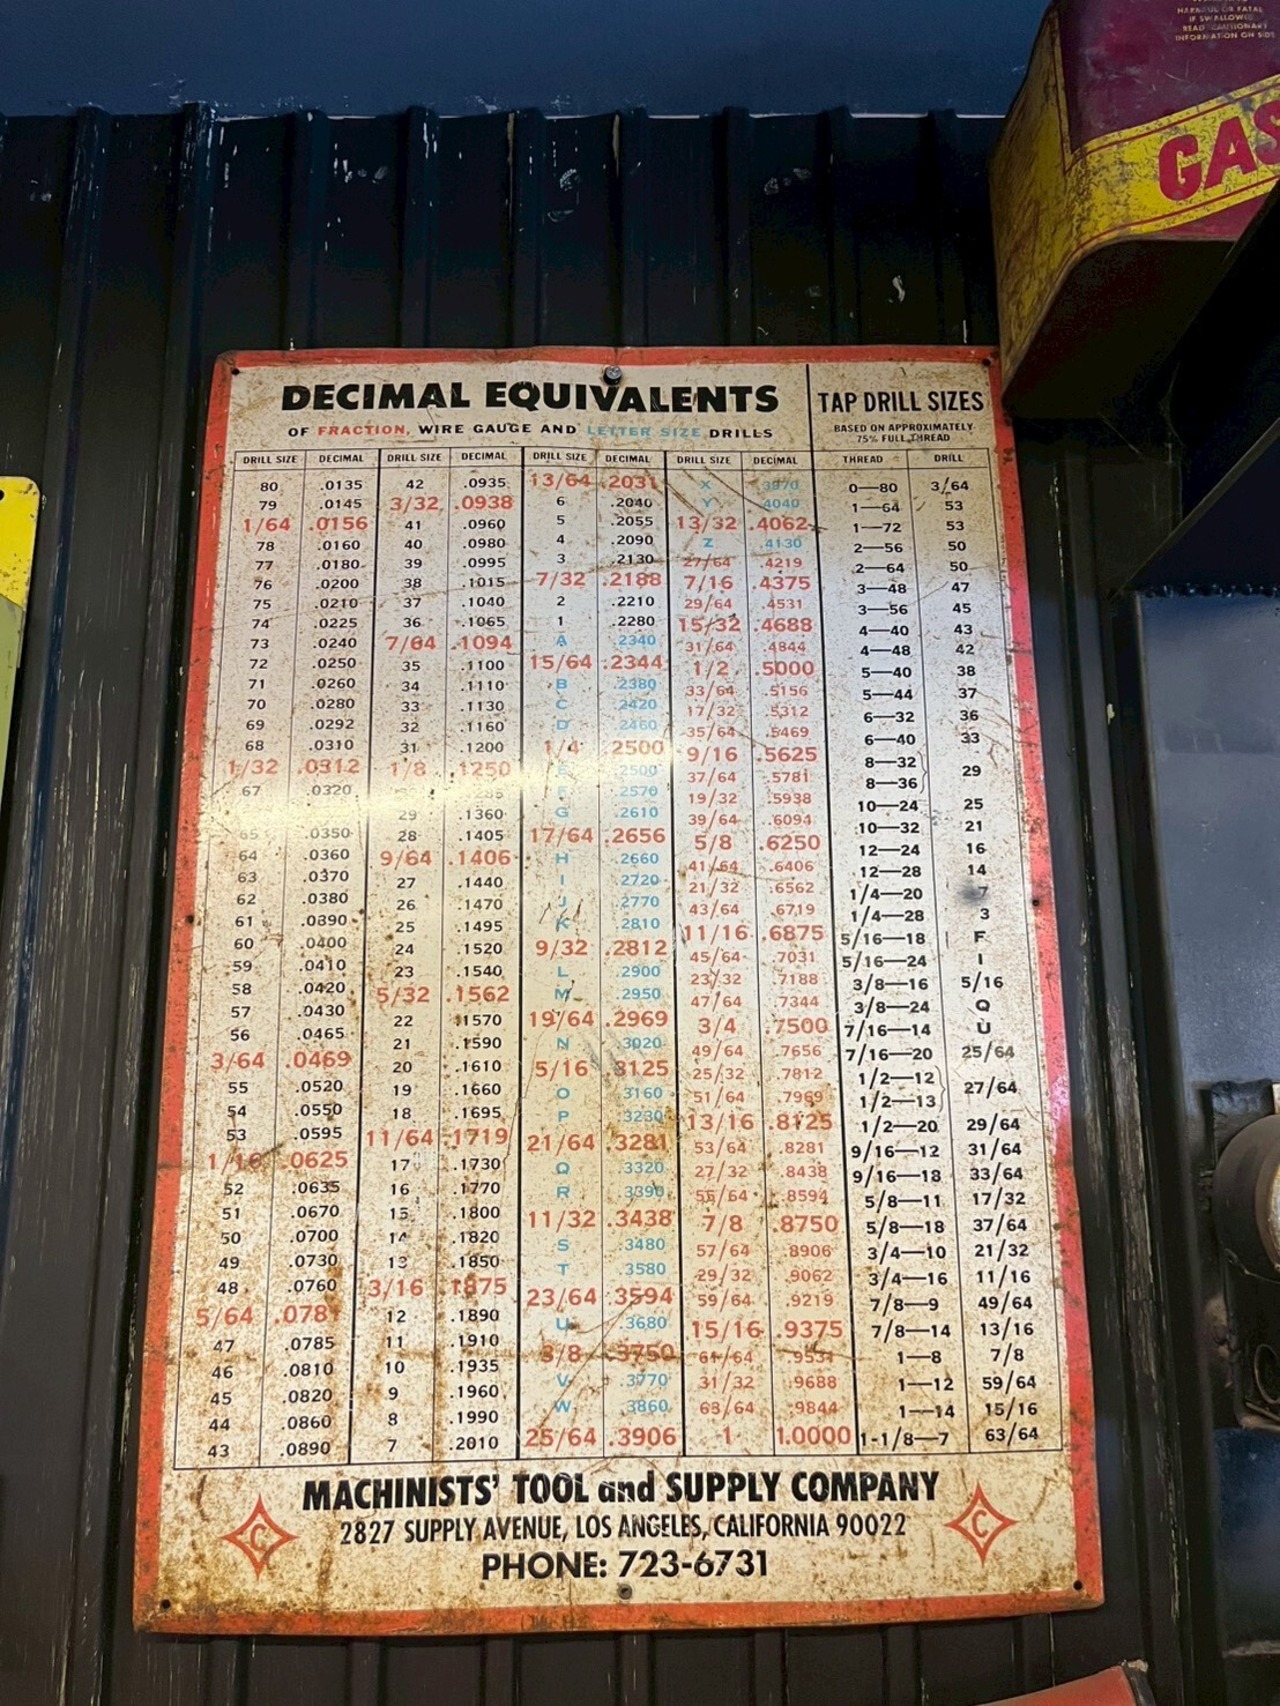 HARMFUL OR FATAL
IF SWALLOWED
READ CAUTIONARY
INFORMATION ON SIDE
GAS
DECIMAL EQUIVALENTS
OF FRACTION, WIRE GAUGE AND LETTER SIZE DRILLS
DRILL SIZE DECIMAL
80 .0135
79 .0145
1/64 .0156
78 .0160
77 .0180
76 .0200
75 .0210
74 .0225
73 .0240
72 .0250
71 .0260
70 .0280
69 .0292
68 .0310
1/32 .0312
67 .0320
65 .0350
64 .0360
63 .0370
62 .0380
61 .0390
60 .0400
59 .0410
58 .0420
57 .0430
56 .0465
3/64 .0469
55 .0520
54 .0550
53 .0595
1/16 .0625
52 .0635
51 .0670
50 .0700
49 .0730
48 .0760
5/64 .0781
47 .0785
46 .0810
45 .0820
44 .0860
43 .0890
DRILL SIZE DECIMAL
42 .0935
3/32 .0938
41 .0960
40 .0980
39 .0995
38 .1015
37 .1040
36 .1065
7/64 .1094
35 .1100
34 .1110
33 .1130
32 .1160
31 .1200
1/8 .1250
29 .1360
28 .1405
9/64 .1406
27 .1440
26 .1470
25 .1495
24 .1520
23 .1540
5/32 .1562
22 .1570
21 .1590
20 .1610
19 .1660
18 .1695
11/64 .1719
17 .1730
16 .1770
15 .1800
14 .1820
13 .1850
3/16 .1875
12 .1890
11 .1910
10 .1935
9 .1960
8 .1990
7 .2010
DRILL SIZE DECIMAL
13/64 .2031
6 .2040
5 .2055
4 .2090
3 .2130
7/32 .2188
2 .2210
1 .2280
A .2340
15/64 .2344
B .2380
C .2420
D .2460
1/4 .2500
E .2500
F .2570
G .2610
17/64 .2656
H .2660
I .2720
J .2770
K .2810
9/32 .2812
L .2900
M .2950
19/64 .2969
N .3020
5/16 .3125
O .3160
P .3230
21/64 .3281
Q .3320
R .3390
11/32 .3438
S .3480
T .3580
23/64 .3594
U .3680
3/8 .3750
V .3770
W .3860
25/64 .3906
DRILL SIZE DECIMAL
X .3970
Y .4040
13/32 .4062
Z .4130
27/64 .4219
7/16 .4375
29/64 .4531
15/32 .4688
31/64 .4844
1/2 .5000
33/64 .5156
17/32 .5312
35/64 .5469
9/16 .5625
37/64 .5781
19/32 .5938
39/64 .6094
5/8 .6250
41/64 .6406
21/32 .6562
43/64 .6719
11/16 .6875
45/64 .7031
23/32 .7188
47/64 .7344
3/4 .7500
49/64 .7656
25/32 .7812
51/64 .7969
13/16 .8125
53/64 .8281
27/32 .8438
55/64 .8594
7/8 .8750
57/64 .8906
29/32 .9062
59/64 .9219
15/16 .9375
61/64 .9531
31/32 .9688
63/64 .9844
1 1.0000
TAP DRILL SIZES
BASED ON APPROXIMATELY
75% FULL THREAD
THREAD DRILL
0—80 3/64
1—64 53
1—72 53
2—56 50
2—64 50
3—48 47
3—56 45
4—40 43
4—48 42
5—40 38
5—44 37
6—32 36
6—40 33
8—32
8—36 29
10—24 25
10—32 21
12—24 16
12—28 14
1/4—20 7
1/4—28 3
5/16—18 F
5/16—24 I
3/8—16 5/16
3/8—24 Q
7/16—14 U
7/16—20 25/64
1/2—12
1/2—13 27/64
1/2—20 29/64
9/16—12 31/64
9/16—18 33/64
5/8—11 17/32
5/8—18 37/64
3/4—10 21/32
3/4—16 11/16
7/8—9 49/64
7/8—14 13/16
1—8 7/8
1—12 59/64
1—14 15/16
1-1/8—7 63/64
MACHINISTS' TOOL and SUPPLY COMPANY
C 2827 SUPPLY AVENUE, LOS ANGELES, CALIFORNIA 90022 C
PHONE: 723-6731